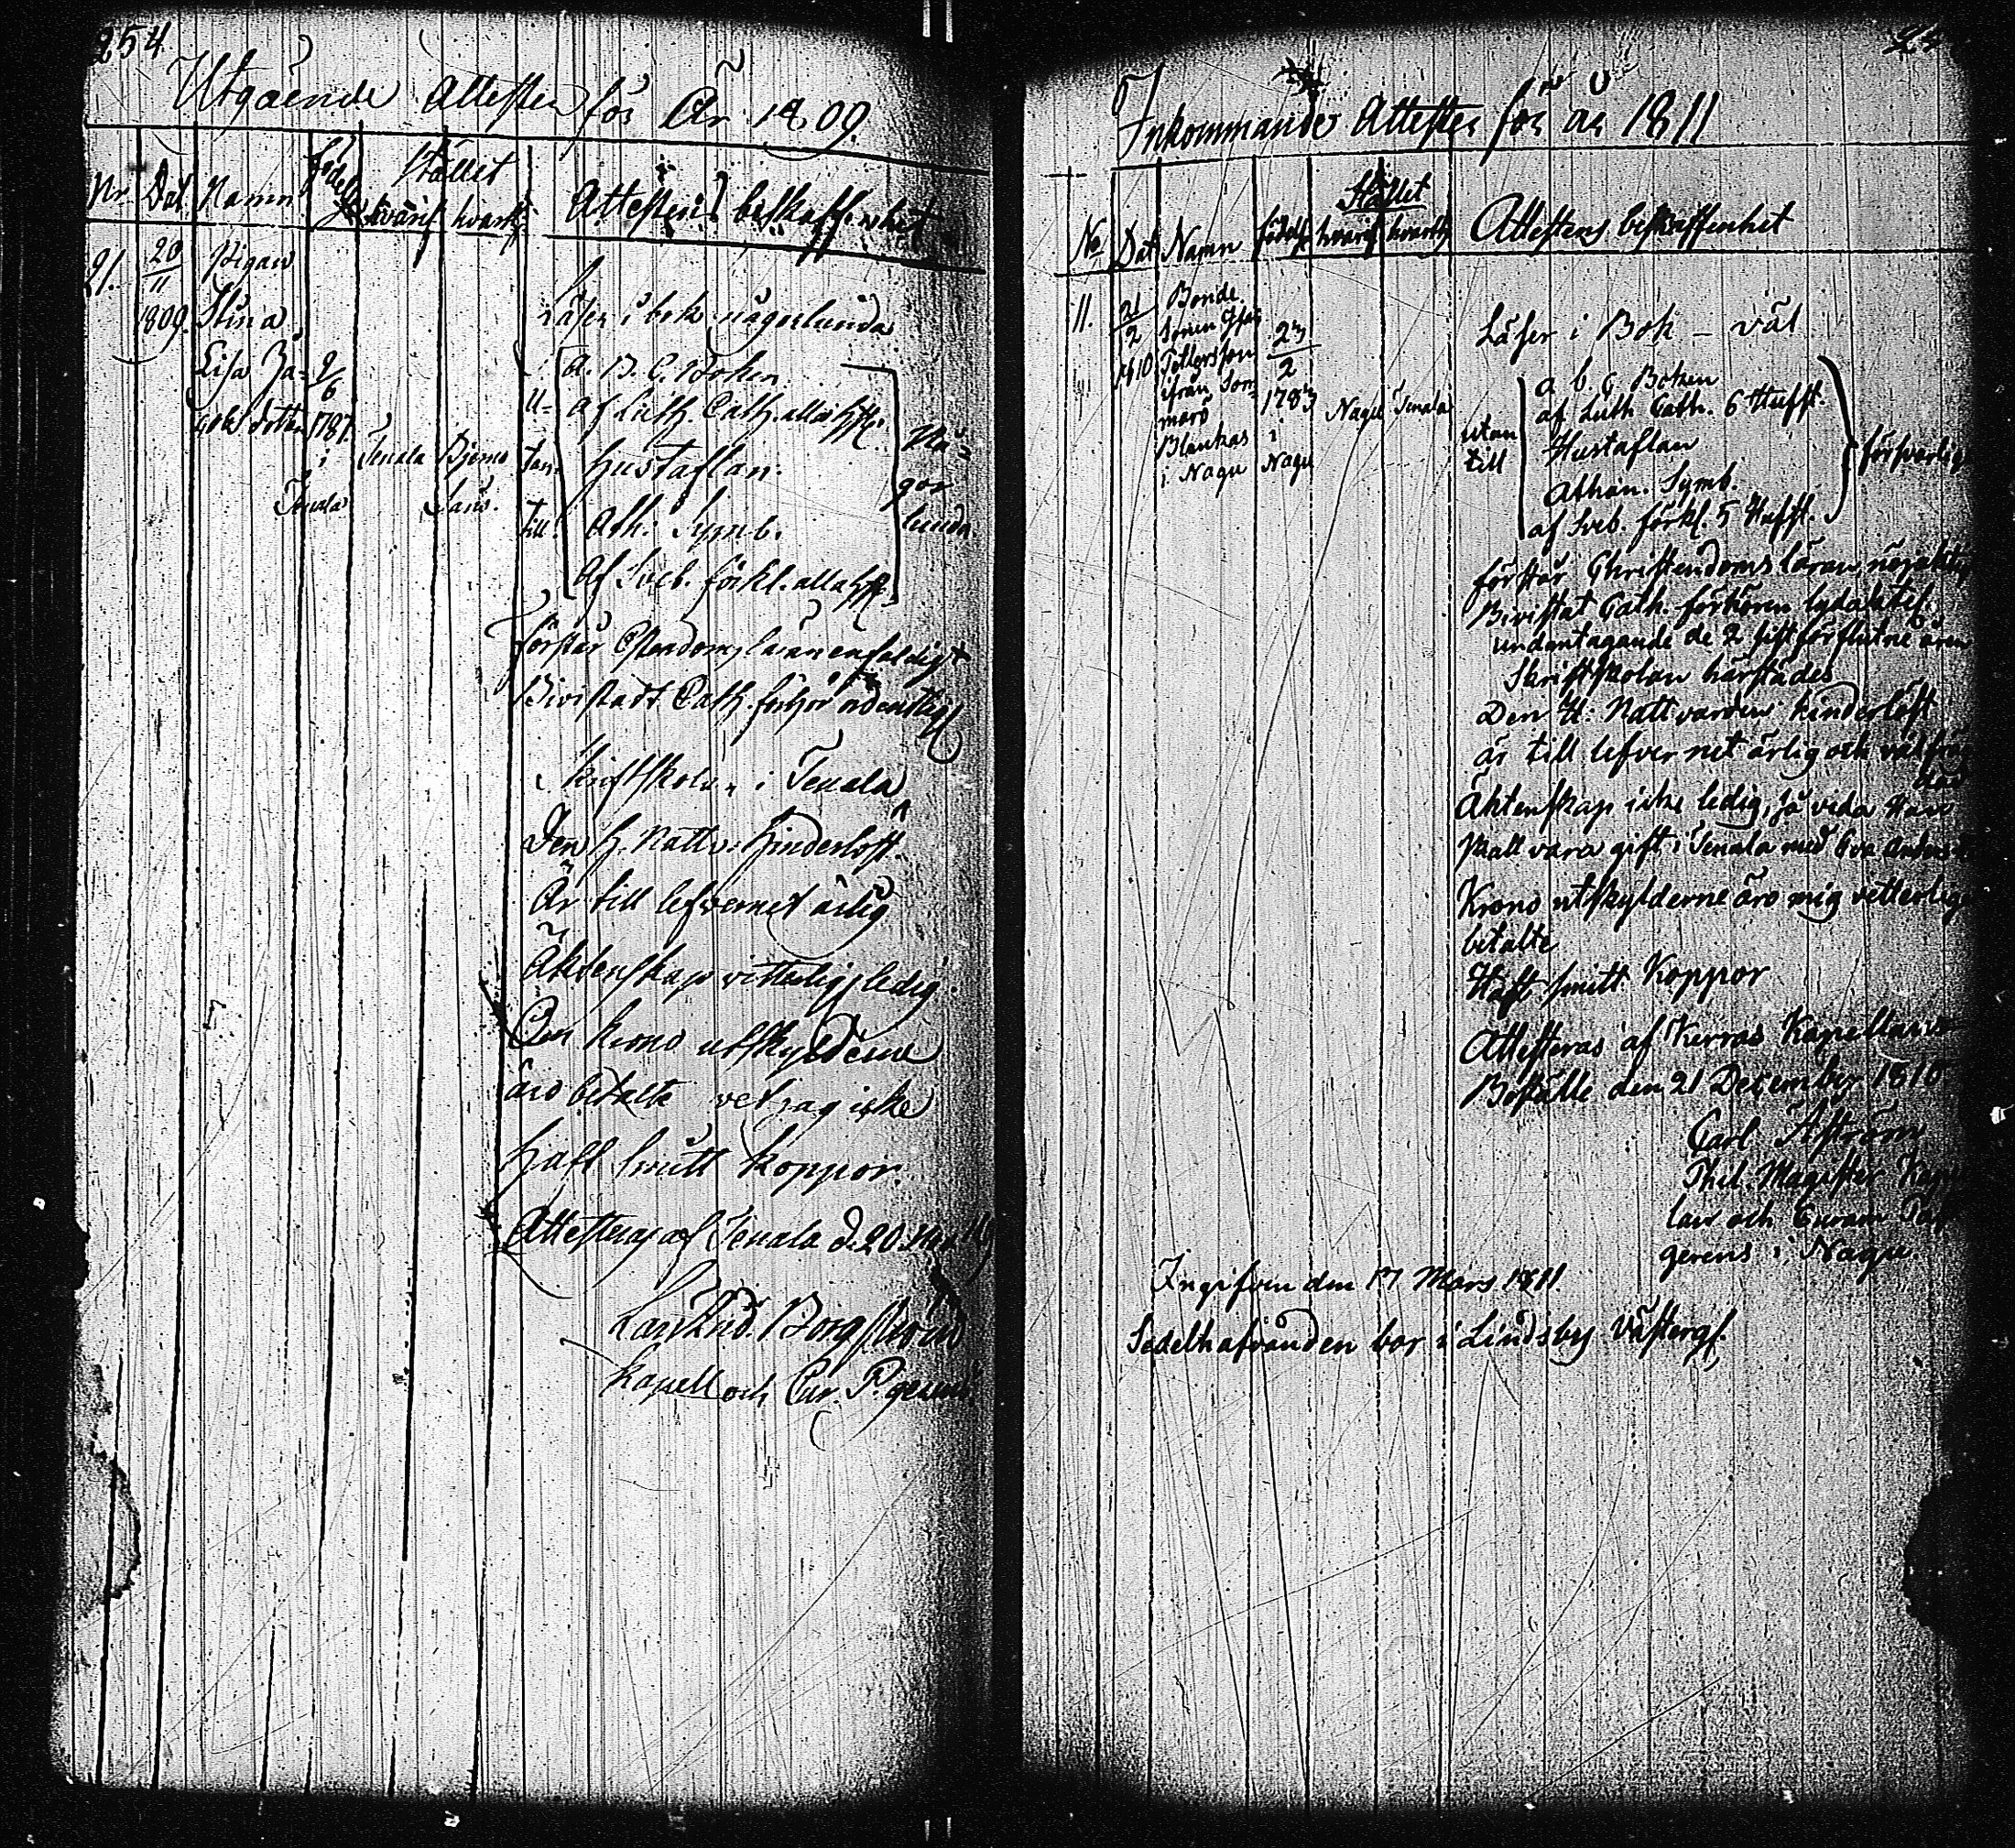 254
Utgående Attester för År 1809.
Nr Dat Namn födelse Stället
hvarifr hvart Attestens beskaffenhet
21. 20/11 1809. Pigan
Stina
Lisa Ja-
cobsdotter 9/6 1787
i Tenala
Tenala Bjerno
Läser i bok någorlunda
utan till
A. B. C. Boken
af Luth. Cath. alla hft.
Hustaflan.
Ath. Symb.
Af Sveb. förkl. alla hft.
Någorlunda
förstår Chrstendomsläran enfaldigt
Bivistadt Cath. förhör ordentligt
Skriftskolan i Tenala
Den H. Nattv. hinderlöst.
Är till lefvernet ärlig
Äktenskap vitterlig ledig.
Om krono utskylderne
äro betalte vet jag icke
haft smitt koppor.
Attesteras af Tenala d. 20
Borgström
Kapell och Cur. P. gerens.
Inkommande Attester för år 1811
Stället
No Dat Namn födelse hvarifr hvartil Attestens beskaffenhet
11. 21/2 1810
Bonde
sonen
Pettersson
ifrån Som
marö
Blankas
i Nagu
23/2
1783
i
Nagu
Nagu Tenala
Läser i Bok – väl
utan
till
a b c Boken
af Luth Cath. 6 Hufst.
Hustaflan
Athan. Symb.
af Sveb. förkl. 5 Hufst.
försvarlig
förstår Christendoms läran nöjaktig
Bivistat Cath. förhören lydaktel.
undantagande de 2 sist förflutne åren
Skriftskolan härstädes
Den H. Nattvarden hinderlöst
är till lefvernet ärlig och välfräg
dad
Äktenskap icke ledig, så vida Han
skall vara gift i Tenala med Eva Anders
Krono utskylderne äro mig vetterlige
betalte
Haft smitt Koppor
Attesteras af Kerras Kapellans
Boställe den 21 December 1810
Carl Åström
Phil. Magister Kapel
lan och Curam Past
gerens i Nagu.
Ingifven den 17 Mars 1811.
Sedelhafvanden bor i Lindsby Västerg.